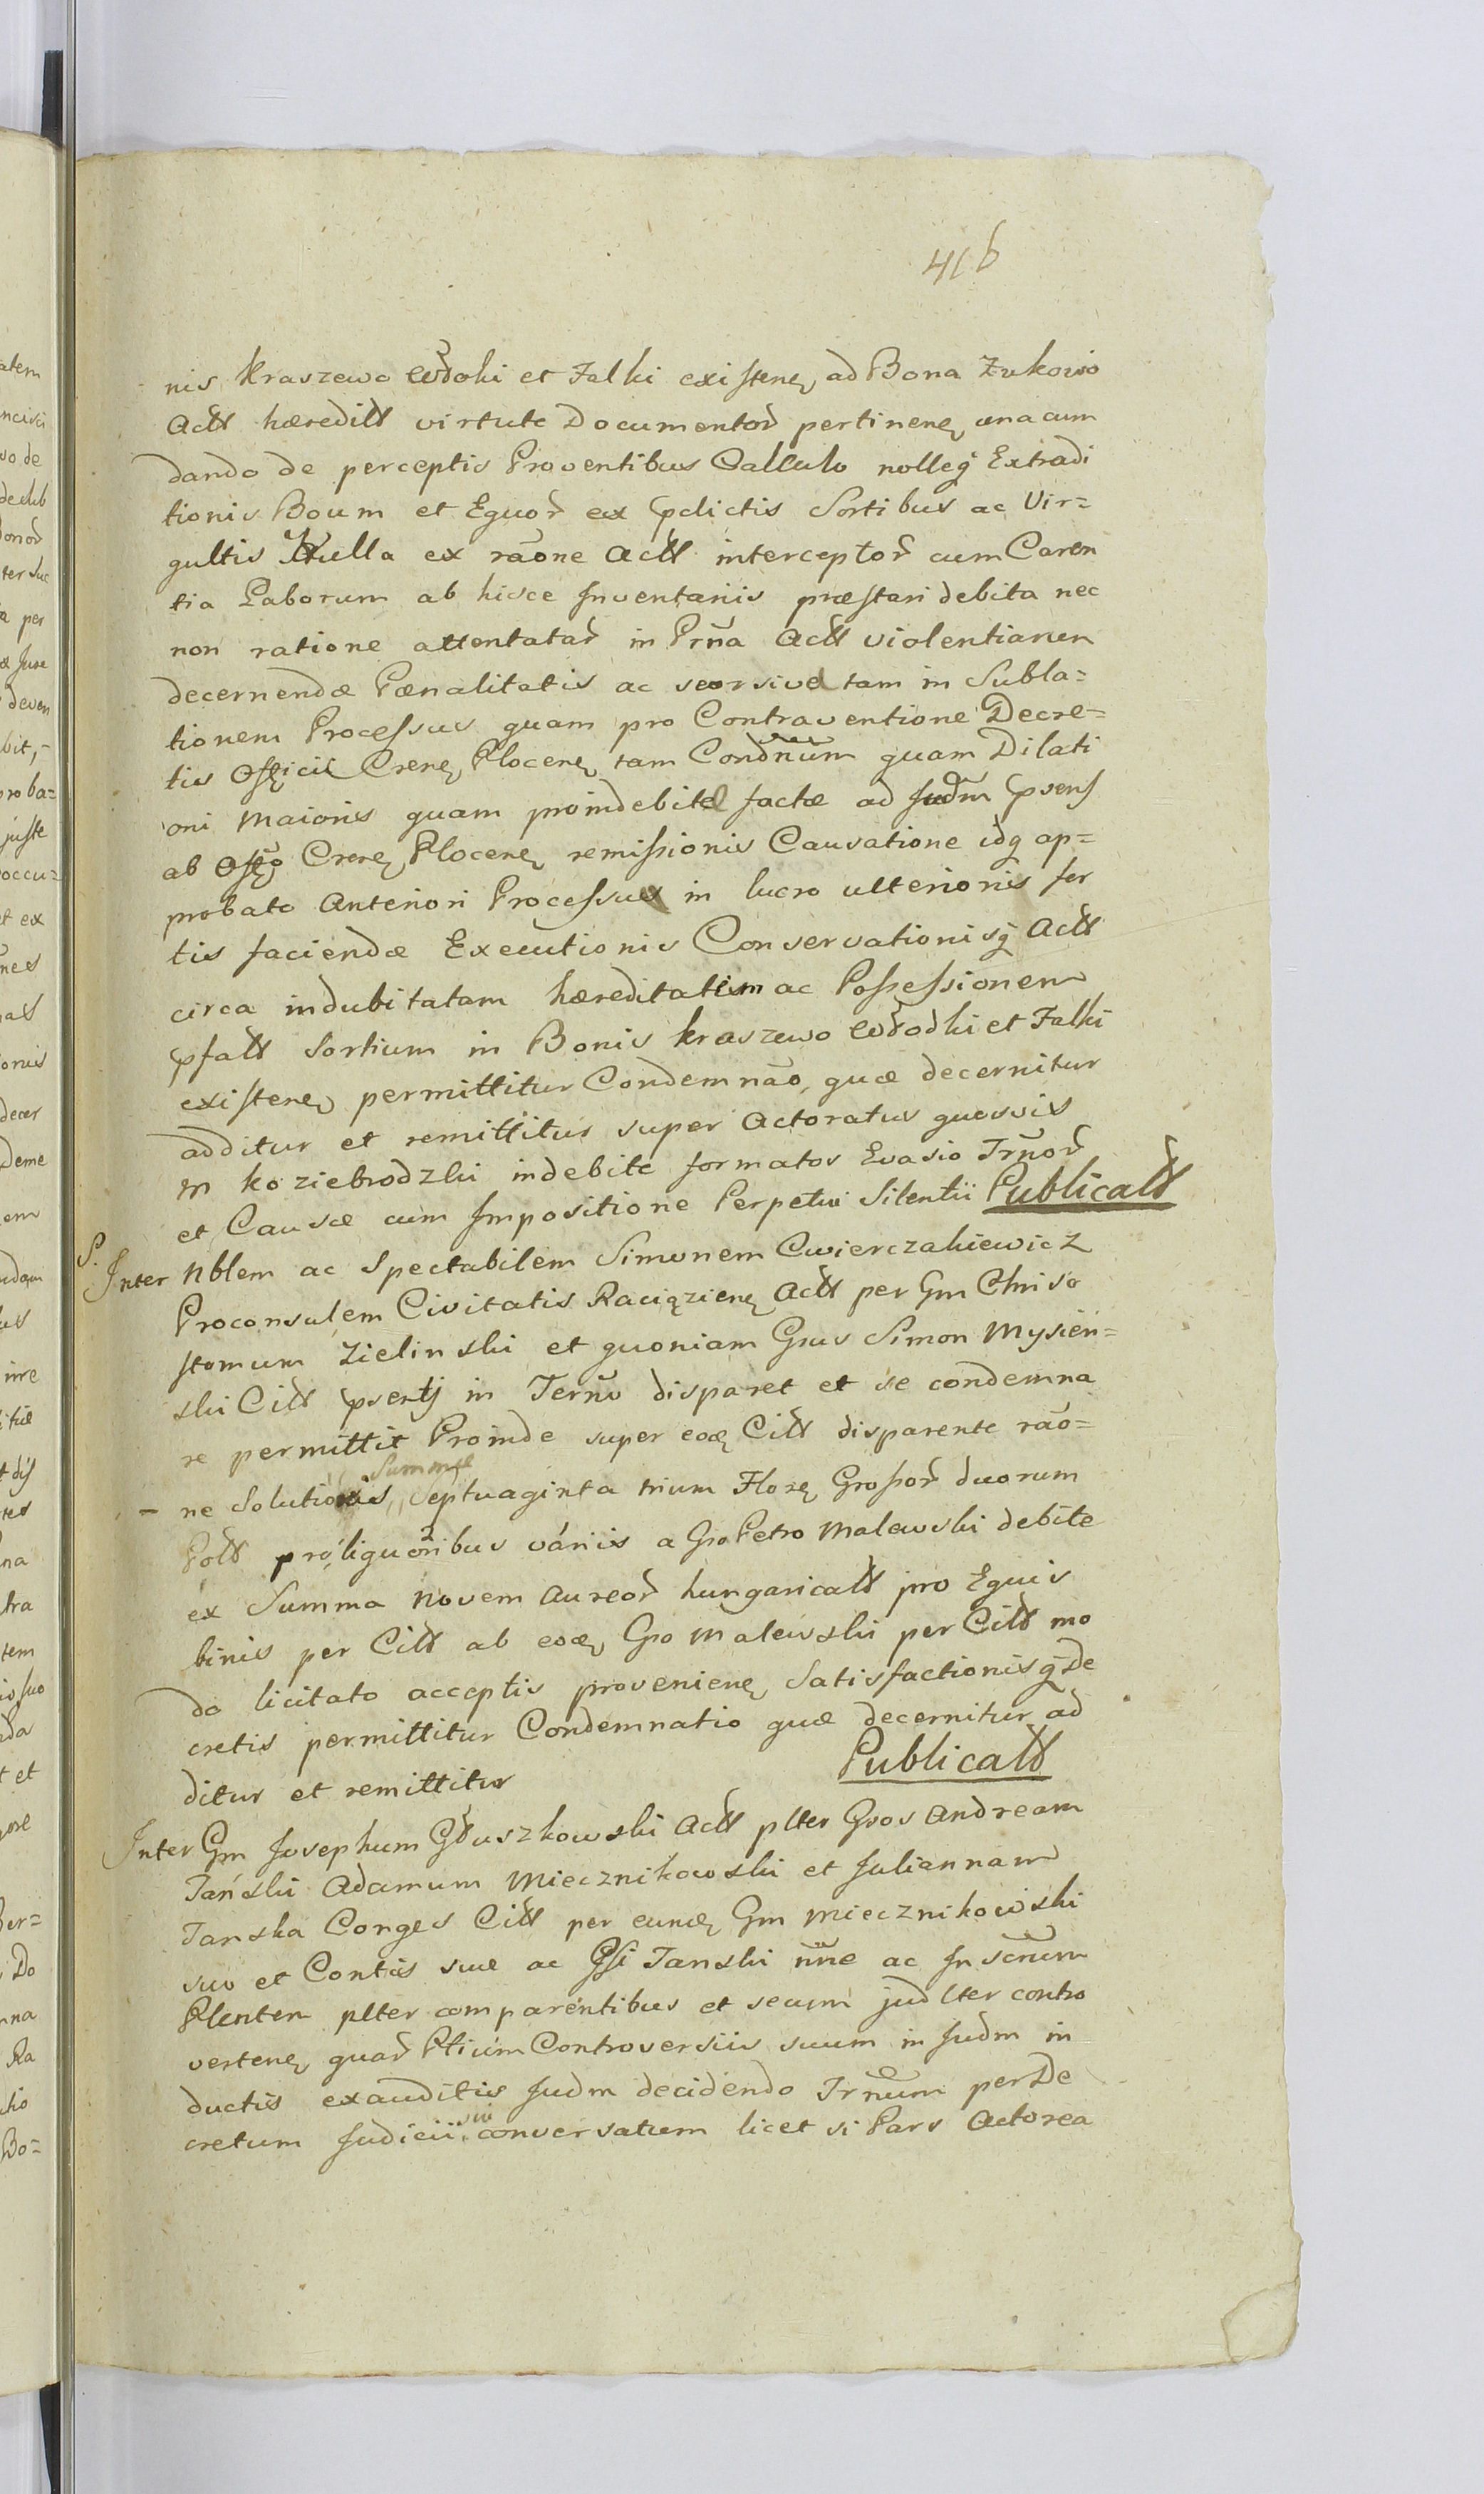 416
nis Kraszewo Włoki et Falki existeñ ad Bona Zukowo
Actt hæreditt virtute Documentor pertineñ unacum
dando de perceptis Proventibus Calculo nolleq Extradi
tionis Boum et Equor ex pdictis Sortibus ac Vir=
gultis Nulla ex raõne Actt interceptor cum Caren
tia Laborum ab hisce Inventariis præstari debita nec
non ratione attentatar in Prña Actt violentiarum
decernendæ Pœnalitatis ac seorsive tam in Subla=
tionem Processus quam pro Contraventione Decre=
tis Officii Creñ Ploceñ tam Condnũm quam Dilati
oni Maioris quam proindebite factæ ad Judm psens
ab Offo Creñ Ploceñ remissionis Causatione idq ap=
probato Anteriori Processu in lucro ulterioris for
tis faciendæ Executionis Conservationisq Actt
circa indubitatam hæreditatem ac Possessionem
pfatt Sortium in Bonis Kraszewo Włodki et Falki
existeñ permittitur Condemnão, quæ decernitur
additur et remittitur super Actoratus quosvis
M Koziebrodzki indebite formatos Evasio Trñor
et Causæ cum Impositione Perpetui Silentii Publicatt
S.
Inter Nblem ac Spectabilem Simonem Cwierczakiewicz
Proconsulem Civitatis Raciązieñ Actt per Gm Chriso
stomum Zielinski et quoniam Grus Simon Mysien=
ski Citt psentj in Terño disparet et se condemna
re permittit Proinde super eođ Citt disparente rão=
Summæ
– ne Solutionis Septuaginta trium Floreñ Grossor duorum
Poltt pro liquoribus variis a Gro Petro Malewski debite
ex Summa Novem Aureor hungaricatt pro Equis
binis per Citt ab eođ Gro Malewski per Citt mo
do licitato acceptis provenieñ Satisfactionisq De
cretis permittitur Condemnatio quæ decernitur ad
ditur et remittitur Publicatt
Inter Gm Josephum Głuszkowski Actt plter Gros Andream
Tański Adamum Miecznikowski et Juliannam
Tanska Conges Citt per eunđ Gm Miecznikowski
suo et Contis suæ ac Gsi Tanski nñe ac In scñum
Plenten plter comparentibus et secum judlter contro
verteñ quar Ptium Controversiis suum in Judm in
ductis exauditis Judm decidendo Trñum per De
cretum Judicii sui conversatum licet si Pars Actorea